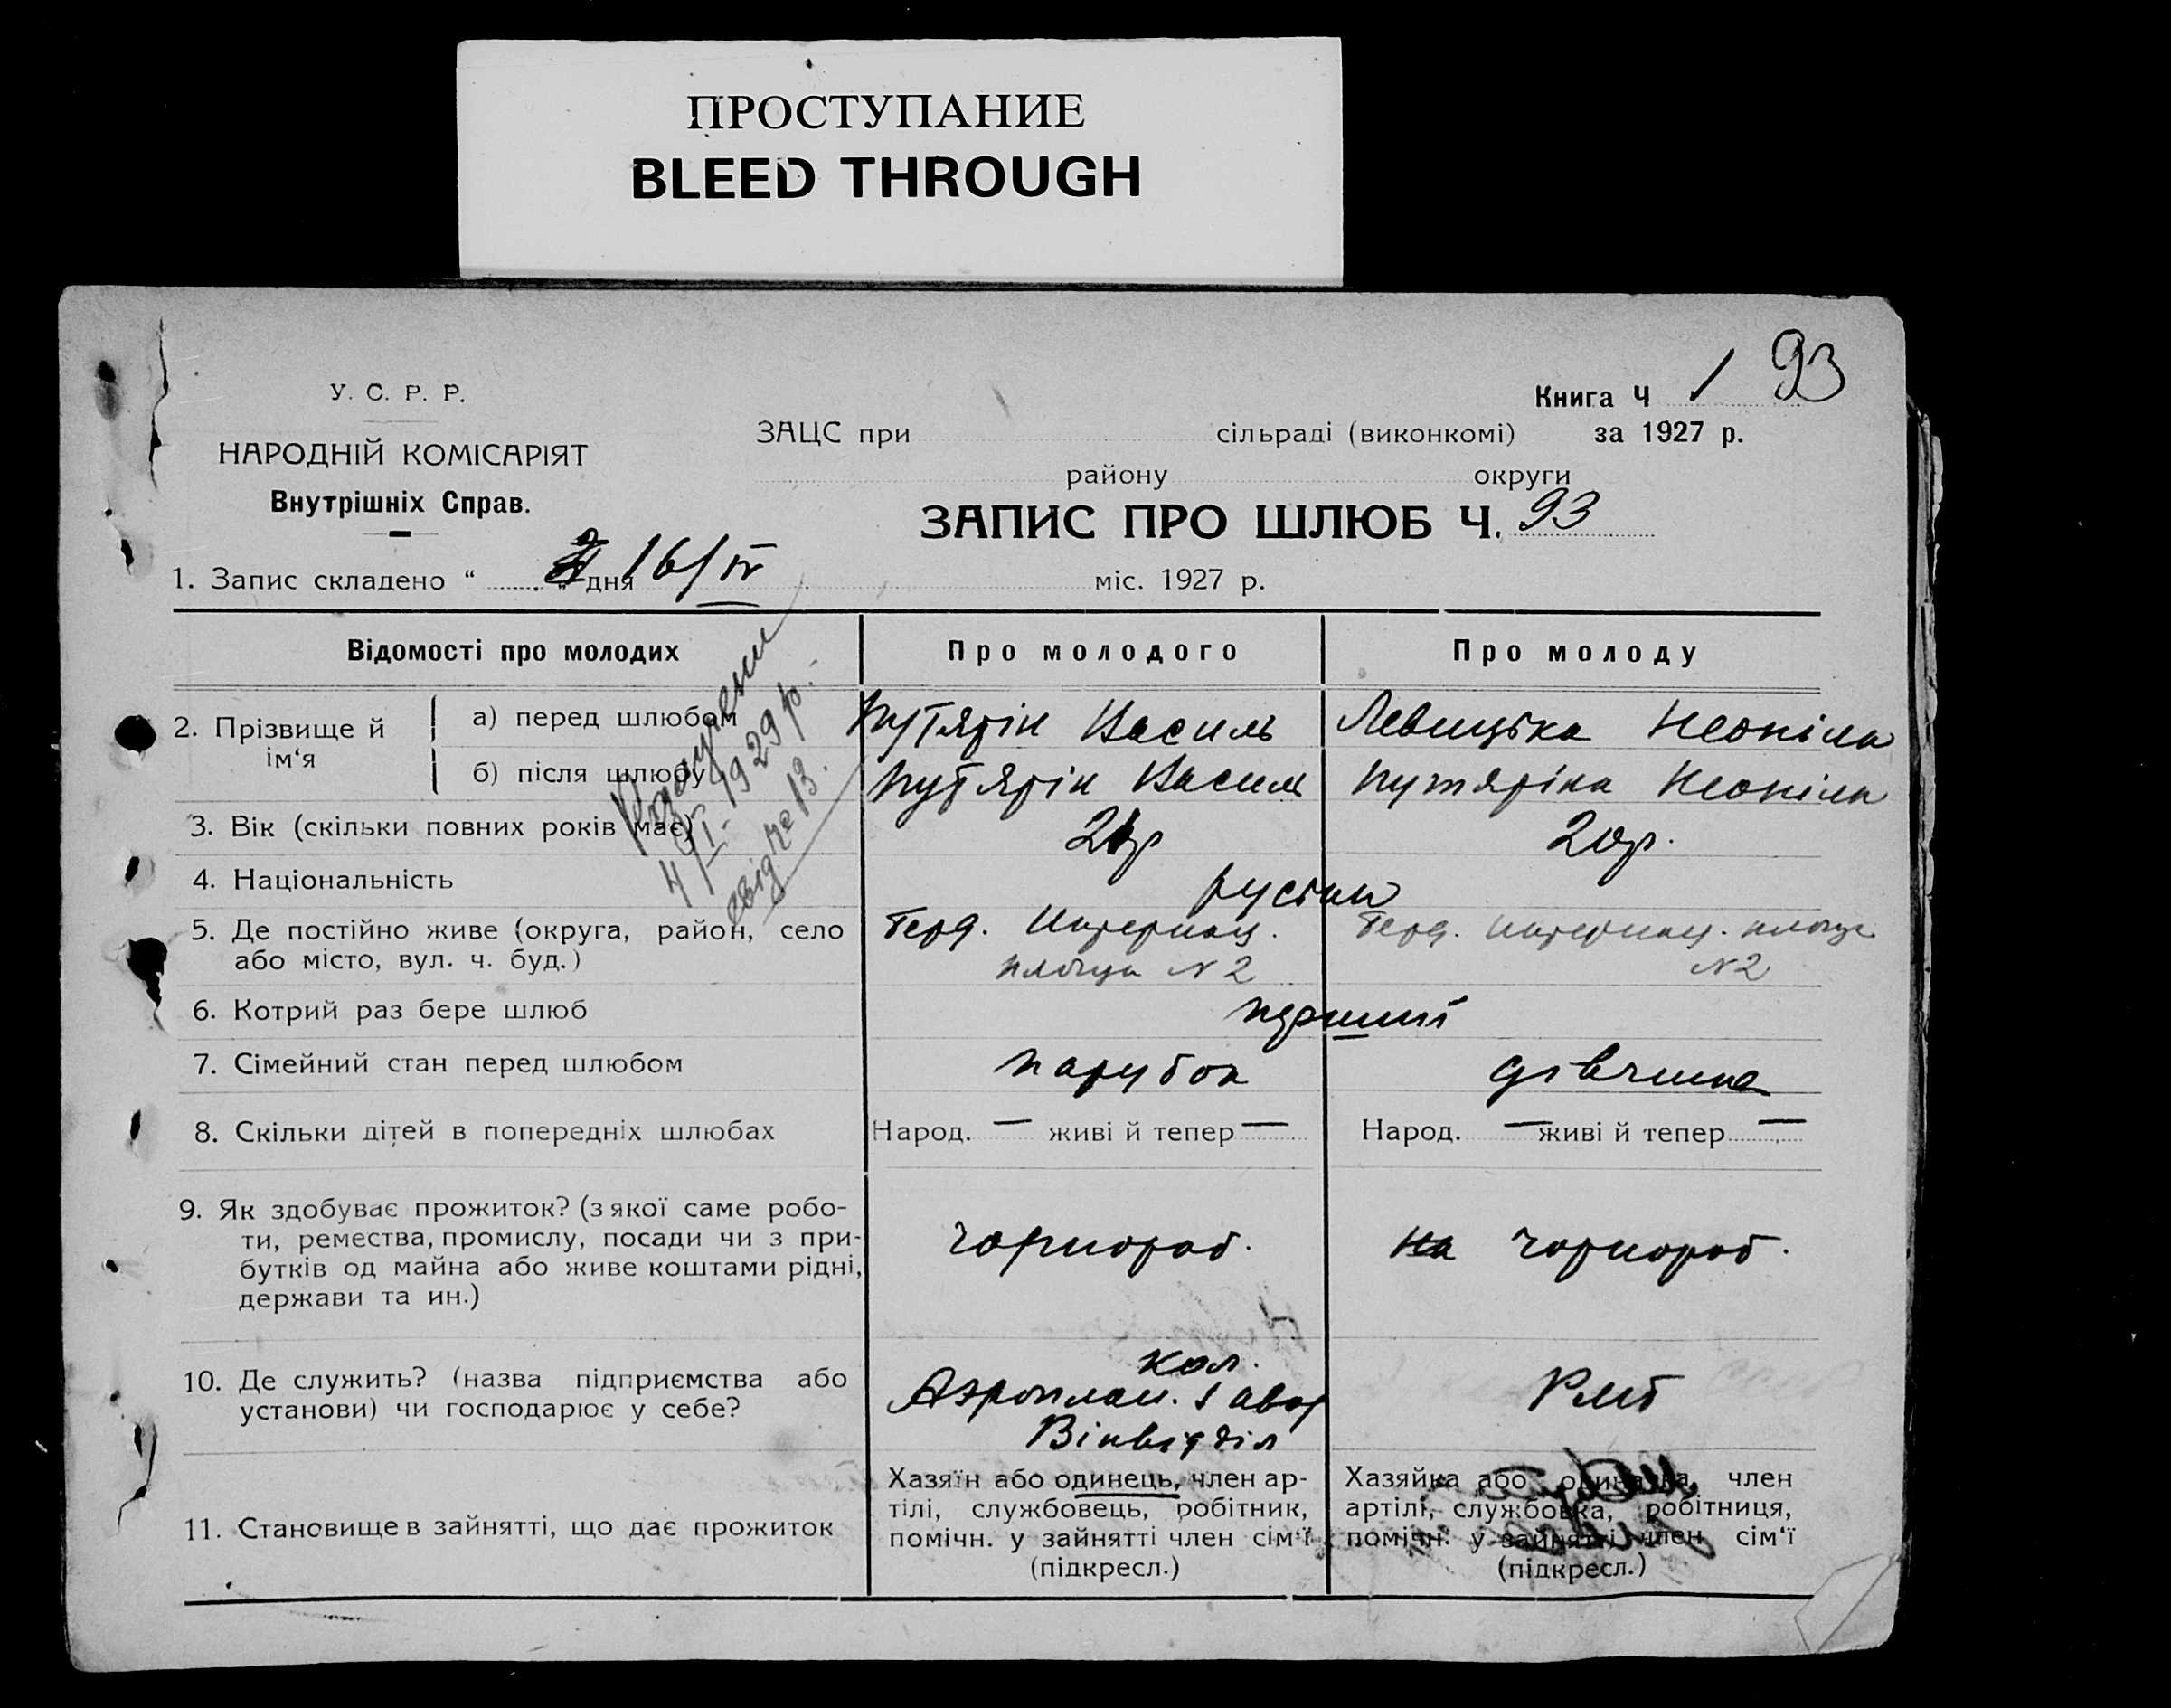 ПРОСТУПАНИЕ
BLEED THROUGH
93
У. С. Р. Р.
Книга Ч 1
НАРОДНІЙ КОМІСАРІЯТ
ЗАЦС при сільраді (виконкомі) за 1927 р.
району округи
Внутрішніх Справ.
ЗАПИС ПРО ШЛЮБ Ч. 93
1. Запис складено “ „ дня 16/IV міс. 1927 р.
Відомості про молодих
Про молодого
Про молоду
Розлучени
4/I-1929 р.
свід № 13.
2. Прізвище й ім‘я
а) перед шлюбом
Путярін Василь
Левицька Неоніла
б) після шлюбу
Путярін Василь
Путяріна Неоніла
3. Вік (скільки повних років має)
20р.
4. Національність
руськи
5. Де постійно живе (округа, район, село
або місто, вул. ч. буд.)
Берд. Интернац.
площа N 2
Берд. Интернац. площа
N 2
6. Котрий раз бере шлюб
перший
7. Сімейний стан перед шлюбом
парубок
дівчина
8. Скільки дітей в попередніх шлюбах
Народ. — живі й тепер —
Народ. — живі й тепер —
9. Як здобуває прожиток? (з якої саме робо-
ти, ремества, промислу, посади чи з при-
бутків од майна або живе коштами рідні,
держави та ин.)
чорнороб.
на чорнороб.
10. Де служить? (назва підприємства або
установи) чи господарює у себе?
кол.
Аэроплан. завод
РМБ
11. Становище в зайнятті, що дає прожиток
Хазяїн або одинець, член ар-
тілі, службовець, робітник,
помічн. у зайнятті член сім‘ї
(підкресл.)
Хазяйка або одиначка, член
артілі, службовка, робітниця,
помічн. у зайнятті член сім‘ї
(підкресл.)